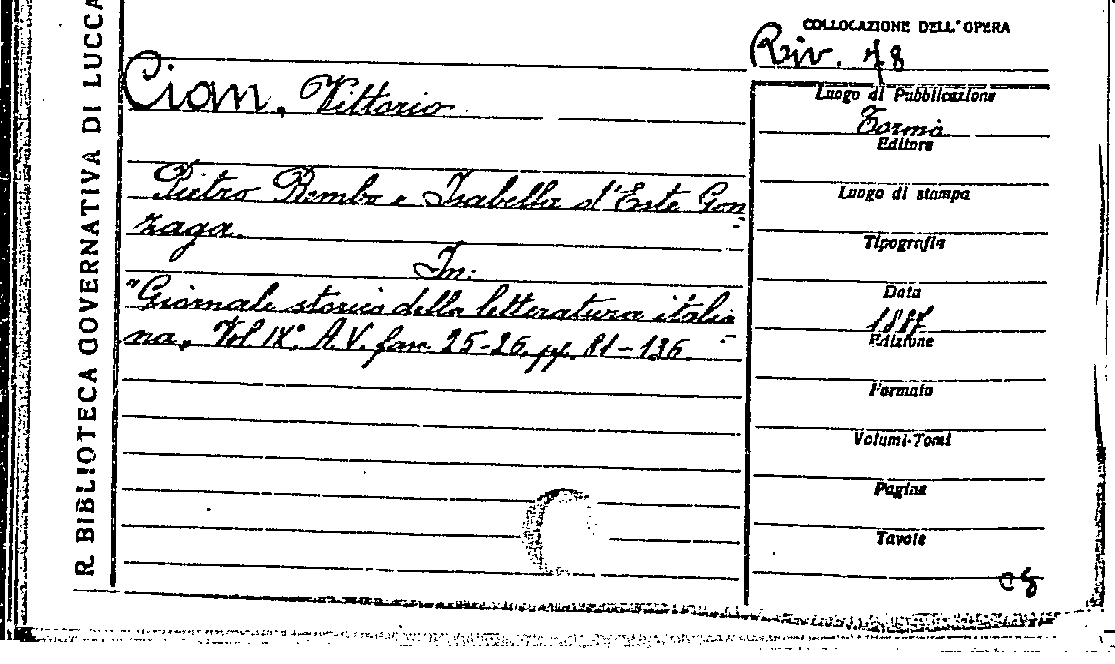 R. BIBLIOTECA GOVERNATIVA DI LUCCA
COLLOCAZIONE DELL'OPERA
Riv. 78
Cian, Vittorio
Pietro Bembo e Isabella d'Este Gon-
zaga.
In:
"Giornale storico della letteratura italia-
na, Vol IX°. A.V. fasc. 25-26. pp. 81-136.
Luogo di Pubblicazione
Editore
Luogo di stampa
Tipografia
Data
1887
Edizione
Formato
Volumi-Tomi
Pagine
Tavole